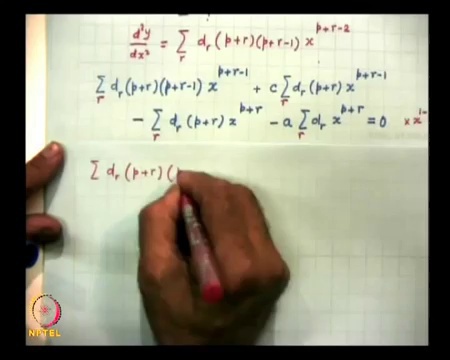 d²y/dx² = Σ_r d_r (p+r)(p+r-1) x^{p+r-2}
Σ_r d_r (p+r)(p+r-1) x^{p+r-1} + c Σ_r d_r (p+r) x^{p+r-1}
- Σ_r d_r (p+r) x^{p+r} - a Σ_r d_r x^{p+r} = 0 × x^{1-
Σ d_r (p+r) (
NPTEL